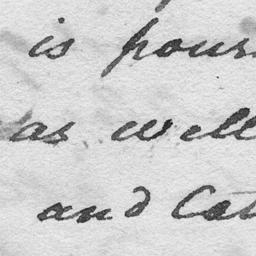 is pour
as well
and Cat